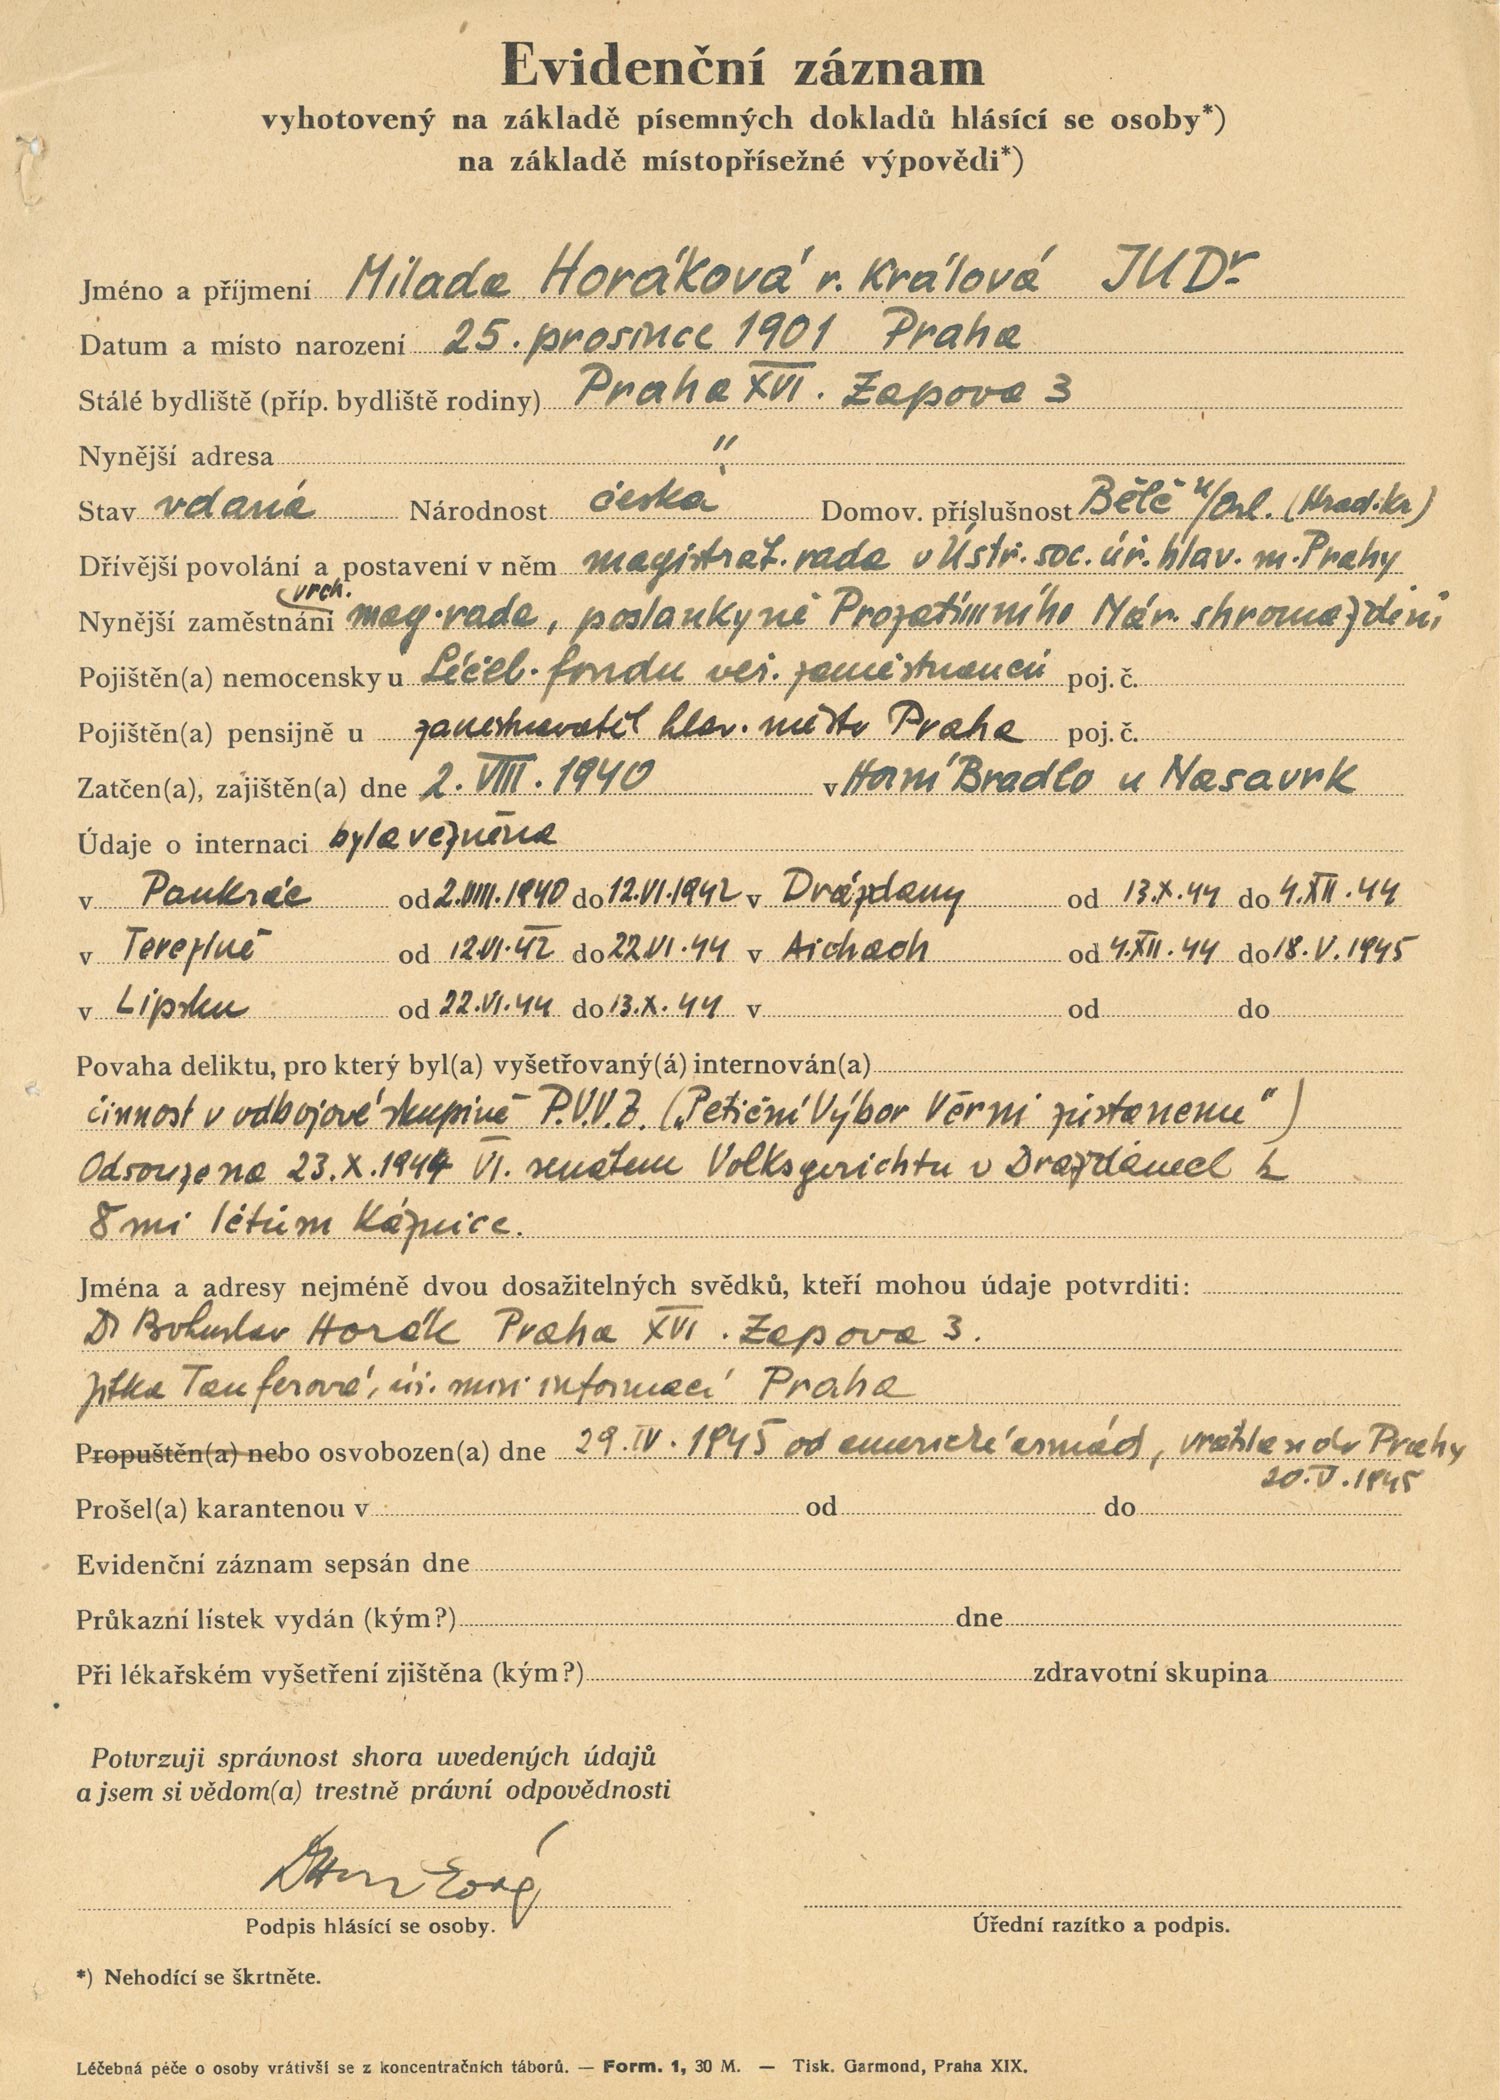 Evidenční záznam
vyhotovený na základě písemných dokladů hlásící se osoby*)
na základě místopřísežné výpovědi*)
Jméno a příjmení Milada Horáková r. Králová JUDr
Datum a místo narození 25. prosince 1901 Praha
Stálé bydliště (příp. bydliště rodiny) Praha XVI. Zapova 3
Nynější adresa "
Stav vdaná Národnost česká Domov. příslušnost Bělč n/Orl. (Hrad. Kr)
Dřívější povolání a postavení v něm magistrát. rada v Ústř. soc. úř. hlav. m. Prahy
vrch.
Nynější zaměstnání mag. rada, poslankyně Prozatímního Nár. shromáždění
Pojištěn(a) nemocensky u Léčeb. fondu veř. zaměstnanců poj. č.
Pojištěn(a) pensijně u zaměstnavatel hlav. město Praha poj. č.
Zatčen(a), zajištěn(a) dne 2. VIII. 1940 v Horní Bradlo u Nasavrk
Údaje o internaci byla vězněna
v Pankrác od 2.VIII.1940 do 12.VI.1942 v Drážďany od 13.X.44 do 4.XII.44
v Terezíně od 12.VI.42 do 22.VI.44 v Aichach od 4.XII.44 do 18.V.1945
v Lipsku od 22.VI.44 do 13.X.44 v od do
Povaha deliktu, pro který byl(a) vyšetřovaný(á) internován(a)
činnost v odbojové skupině P.V.V.Z. („Petiční Výbor Věrni zůstaneme")
Odsouzena 23.X.1944 VI. senátem Volksgerichtu v Drážďanech k
8mi létům káznice.
Jména a adresy nejméně dvou dosažitelných svědků, kteří mohou údaje potvrditi:
Dr Bohuslav Horák Praha XVI. Zapova 3.
Jitka Tauferová, úř. min informací Praha
Propuštěn(a) nebo osvobozen(a) dne 29.IV.1945 od americké armády, vrátila se do Prahy
20.V.1945
Prošel(a) karantenou v od do
Evidenční záznam sepsán dne
Průkazní lístek vydán (kým?) dne
Při lékařském vyšetření zjištěna (kým?) zdravotní skupina
Potvrzuji správnost shora uvedených údajů
a jsem si vědom(a) trestně právní odpovědnosti
Podpis hlásící se osoby. Úřední razítko a podpis.
*) Nehodící se škrtněte.
Léčebná péče o osoby vrátivší se z koncentračních táborů. — Form. 1, 30 M. — Tisk. Garmond, Praha XIX.